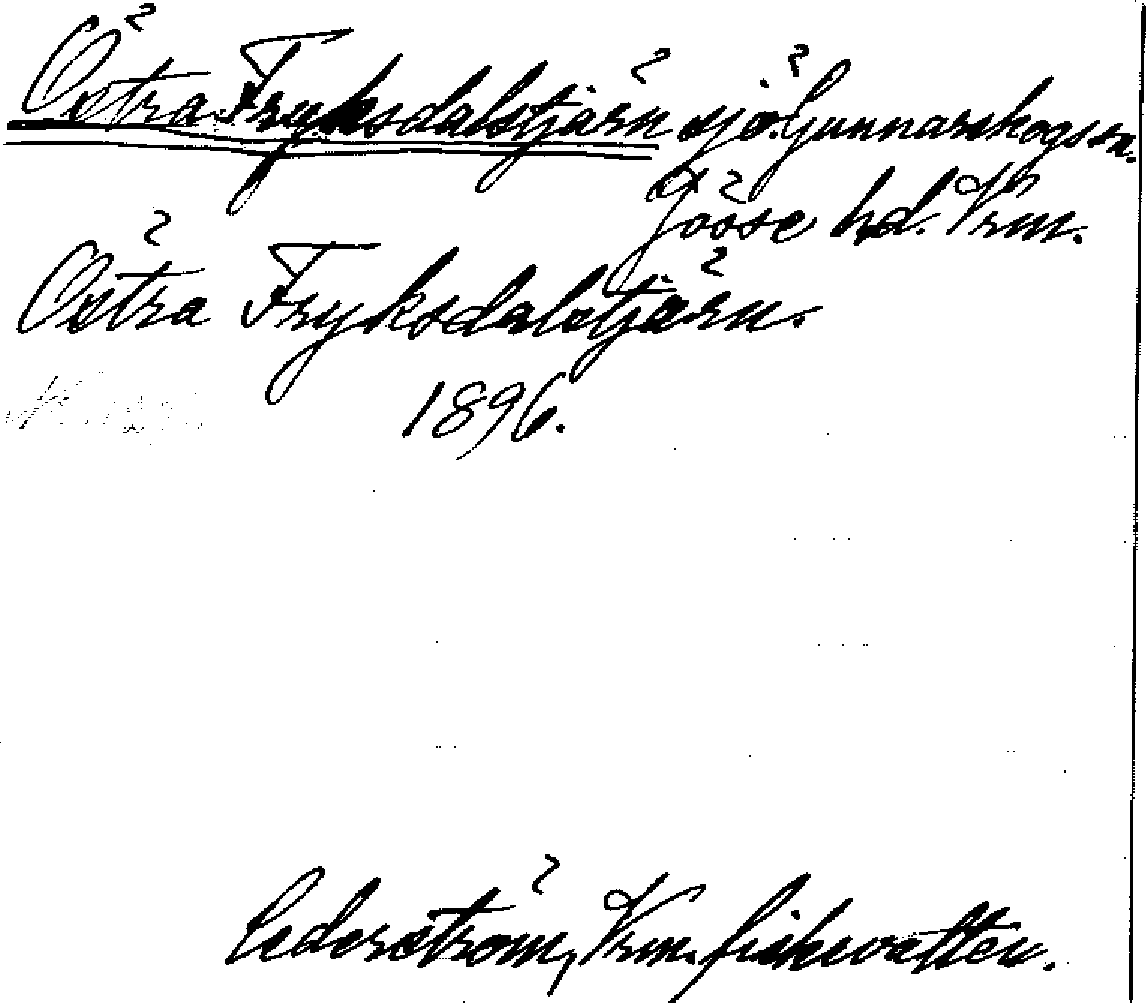 Östra Fryksdalstjärn sjö. Gunnarskogs sn.
Jösse hd. Vrm.
Östra Fryksdalstjärn.
1896.
Cederström, Vrm. fiskevatten.